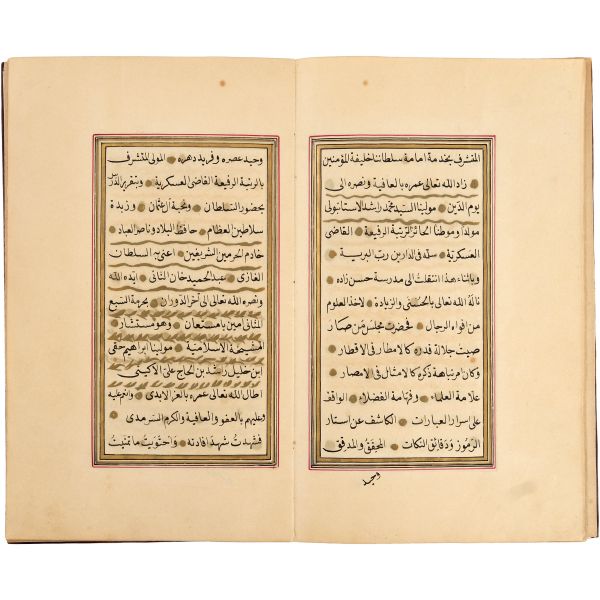 المتشرف بخدمة امامة سلطاننا خليفة للمؤمنين
زاد الله تعالى عمره بالعافية ونصره الى
يوم الدين مولينا السيد محمد راشد الاستانبولى
مولدا وموطنا الحائز لرتبة الرفيعة القاضى
العسكرية سلمه فى الدارين رب البرية
وباثناء هذا انتقلت الى مدرسة حسن زاده
ناله الله تعالى بالحسنى والزيادة لاخذ العلوم
من افواه الرجال فحضرت مجلس من صار
صيت جلالة قدره كالامطار فى الاقطار
وكان مرتبا هة ذكره كالامثال فى الامصار
علامة العلماء وفهامة الفضلاء الواقف
على اسرار العبارات الكاشف عن استار
الرموز ودقائق النكات المحقق والمدقق
وحيد
وحيد عصره وفريد دهره المولى المتشرف
بالرتبة الرفيعة القاضى العسكرية وبتقرير الدرس
بحضور السلطان ونخبة آل عثمان وزبدة
سلاطين العظام حافظ البلاد وناصر العباد
خادم الحرمين الشريفين اعنى به السلطان
الغازى عبد الحميد خان الثانى ايده الله
ونصره الله تعالى الى آخر الدوران بحرمة السبع
المثانى آمين يا مستعان وهو مستشار
المشيخة الاسلامية مولينا ابراهيم حقى
ابن خليل رشد بن الحاج على الاكينى
اطال الله تعالى عمره بالعز الابدى وانعم عليه
وعليهم بالعفو والعافية والكرم السرمدى
فشهدت شهد افادته واحتويت ما تمنيت